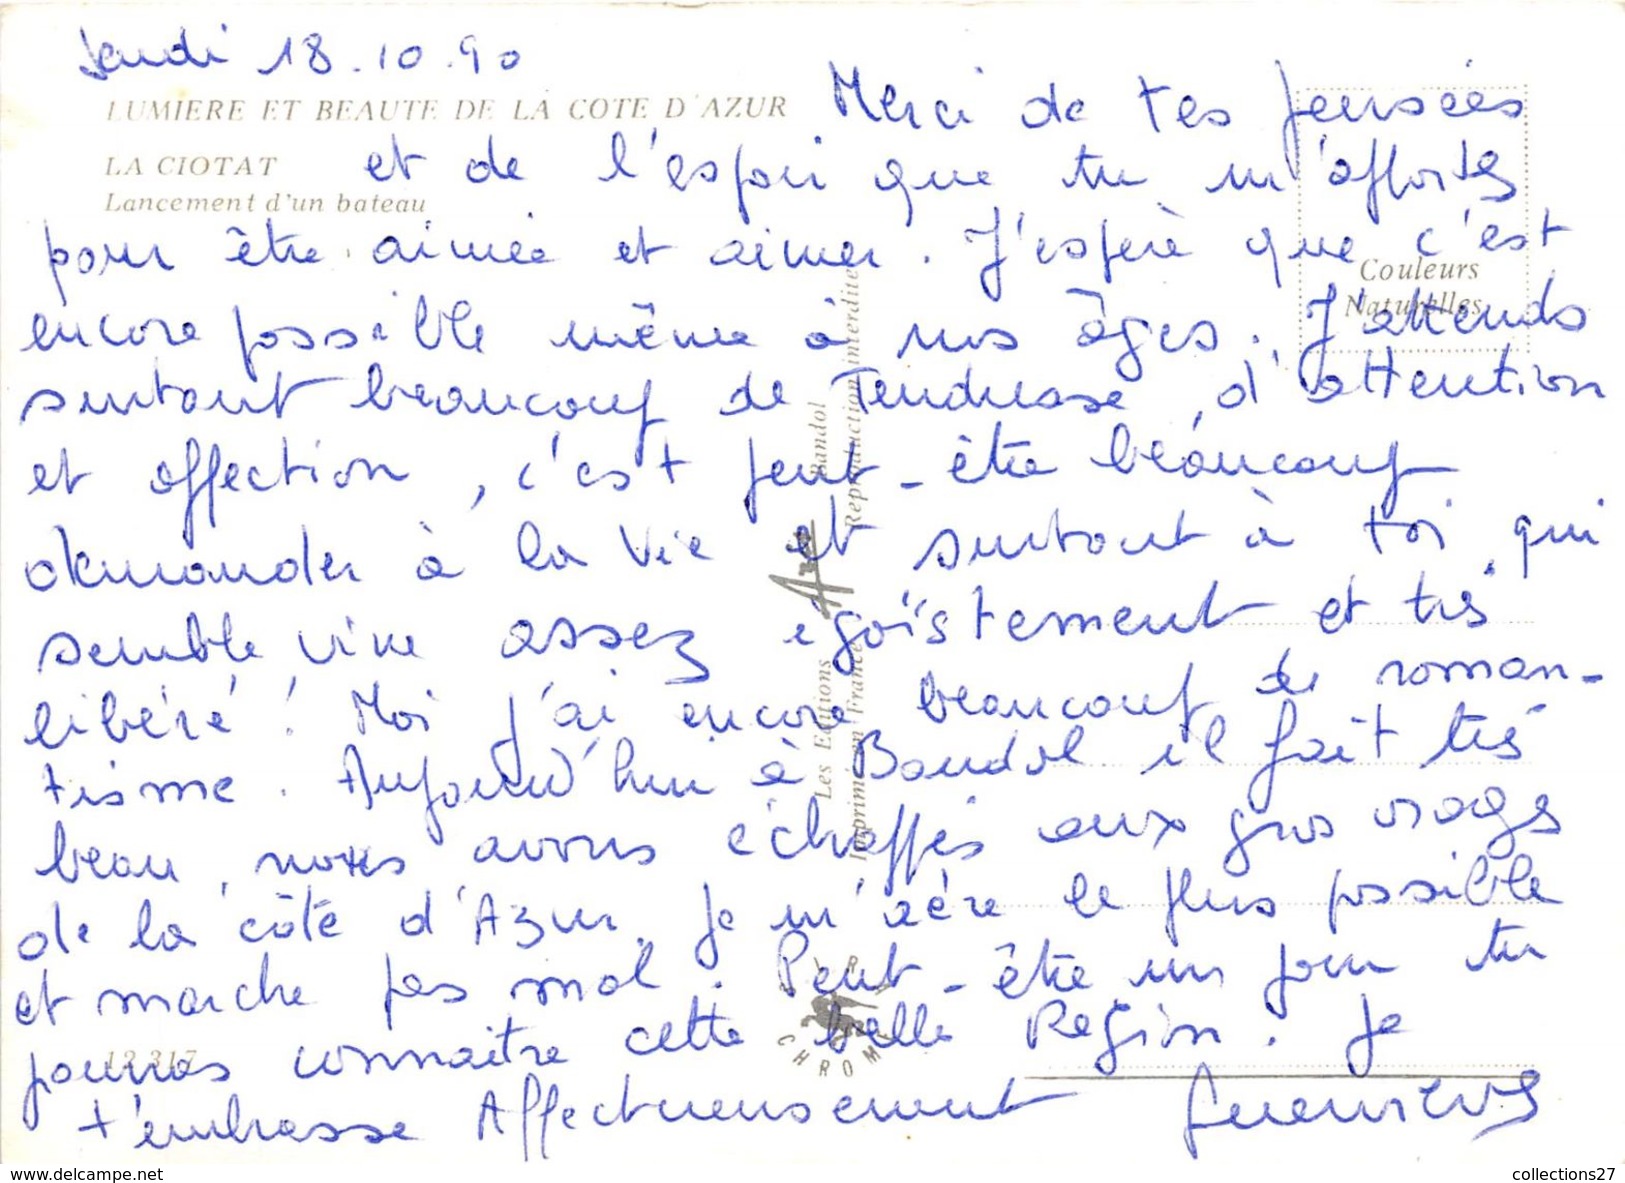 Jeudi 18.10.90
LUMIERE ET BEAUTE DE LA COTE D'AZUR
LA CIOTAT
Lancement d'un bateau
Couleurs
Naturelles
Merci de tes pensées
et de l'espoir que tu m'apportes
pour être aimée et aimer. J'espère que c'est
encore possible même à nos âges. J'attends
surtout beaucoup de Tendresse, d'attention
et affection, c'est peut-être beaucoup
demander à la vie et surtout à toi qui
semble vivre assez égoïstement et très
libéré! Moi j'ai encore beaucoup de roman-
tisme. Aujourd'hui à Bandol il fait très
beau, nous avons échappés aux gros orages
de la côte d'Azur. Je m'aère le plus possible
et marche pas mal. Peut-être un jour tu
pourras connaitre cette belle Région. Je
t'embrasse Affectueusement Geneviève
Les Editions Bandol
Imprimé en France Reproduction interdite
CHROME
12 317
collections27